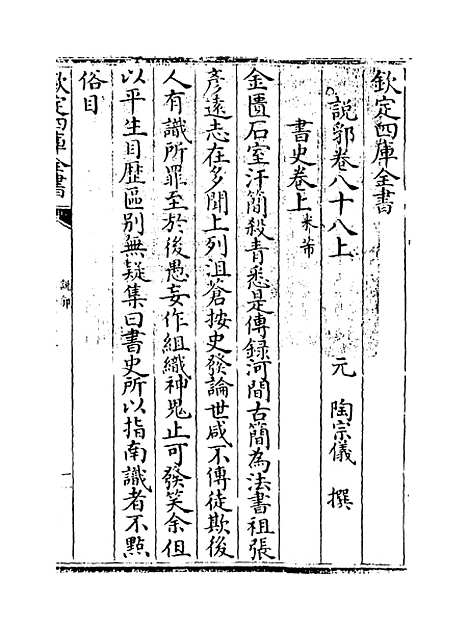 欽定四庫全書
説郛卷八十八上
元 陶宗儀 撰
書史卷上 米芾
金匱石室汗簡殺青悉是傳録河間古簡為法書祖張
彦逺志在多聞上列沮蒼按史發論世咸不傳徒欺後
人有識所罪至於後愚妄作組織神鬼止可發笑余但
以平生目歴區别無疑集曰書史所以指南識者不點
俗目
欽定四庫全書
説郛
一